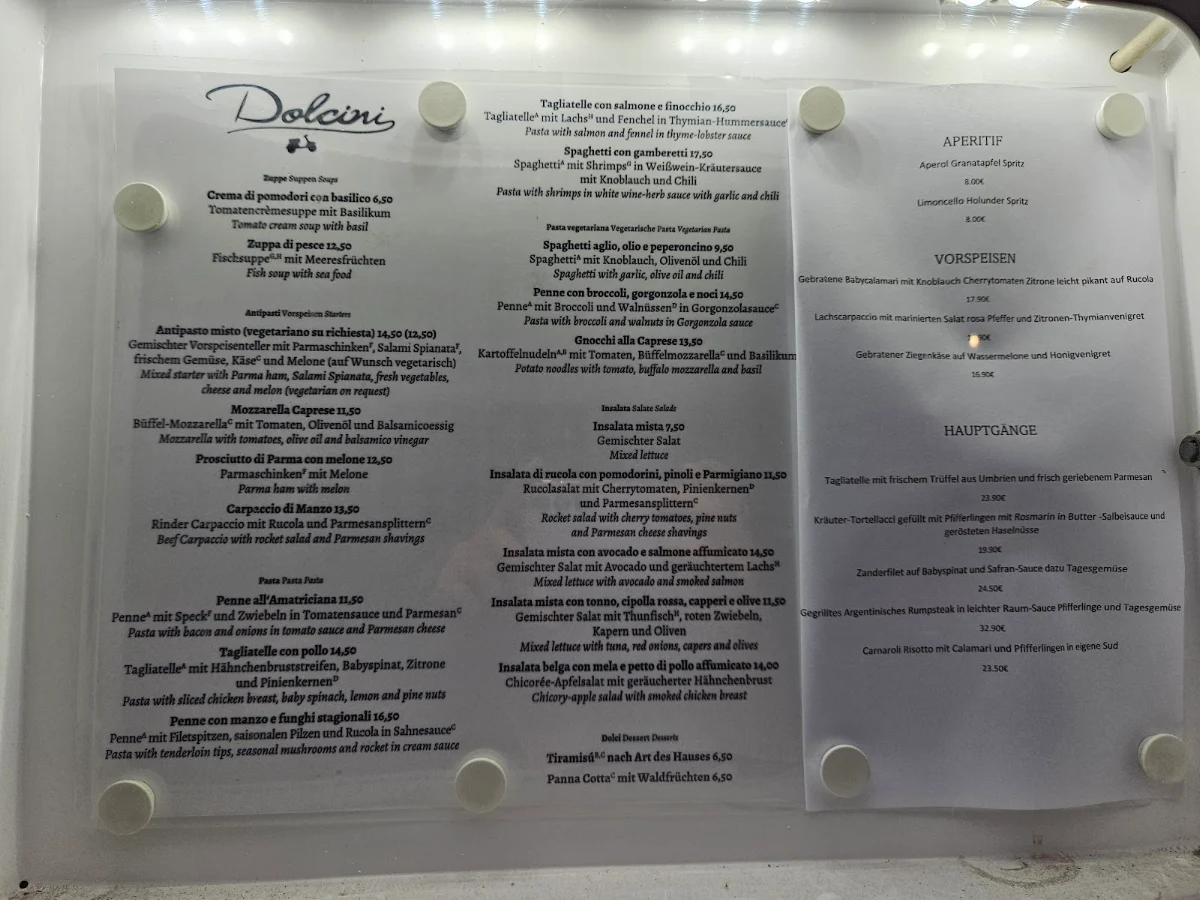 Dolcini
Zuppe Suppen Soups
Crema di pomodori con basilico 6,50
Tomatencrèmesuppe mit Basilikum
Tomato cream soup with basil
Zuppa di pesce 12,50
Fischsuppeᴳ,ᴴ mit Meeresfrüchten
Fish soup with sea food
Antipasti Vorspeisen Starters
Antipasto misto (vegetariano su richiesta) 14,50 (12,50)
Gemischter Vorspeisenteller mit Parmaschinkenᶠ, Salami Spianataᶠ,
frischem Gemüse, Käseᶜ und Melone (auf Wunsch vegetarisch)
Mixed starter with Parma ham, Salami Spianata, fresh vegetables,
cheese and melon (vegetarian on request)
Mozzarella Caprese 11,50
Büffel-Mozzarellaᶜ mit Tomaten, Olivenöl und Balsamicoessig
Mozzarella with tomatoes, olive oil and balsamico vinegar
Prosciutto di Parma con melone 12,50
Parmaschinkenᶠ mit Melone
Parma ham with melon
Carpaccio di Manzo 13,50
Rinder Carpaccio mit Rucola und Parmesansplitternᶜ
Beef Carpaccio with rocket salad and Parmesan shavings
Pasta Pasta Pasta
Penne all'Amatriciana 11,50
Penneᴬ mit Speckᶠ und Zwiebeln in Tomatensauce und Parmesanᶜ
Pasta with bacon and onions in tomato sauce and Parmesan cheese
Tagliatelle con pollo 14,50
Tagliatelleᴬ mit Hähnchenbruststreifen, Babyspinat, Zitrone
und Pinienkernenᴰ
Pasta with sliced chicken breast, baby spinach, lemon and pine nuts
Penne con manzo e funghi stagionali 16,50
Penneᴬ mit Filetspitzen, saisonalen Pilzen und Rucola in Sahnesauceᶜ
Pasta with tenderloin tips, seasonal mushrooms and rocket in cream sauce
Tagliatelle con salmone e finocchio 16,50
Tagliatelleᴬ mit Lachsᴴ und Fenchel in Thymian-Hummersauce
Pasta with salmon and fennel in thyme-lobster sauce
Spaghetti con gamberetti 17,50
Spaghettiᴬ mit Shrimpsᴳ in Weißwein-Kräutersauce
mit Knoblauch und Chili
Pasta with shrimps in white wine-herb sauce with garlic and chili
Pasta vegetariana Vegetarische Pasta Vegetarian Pasta
Spaghetti aglio, olio e peperoncino 9,50
Spaghettiᴬ mit Knoblauch, Olivenöl und Chili
Spaghetti with garlic, olive oil and chili
Penne con broccoli, gorgonzola e noci 14,50
Penneᴬ mit Broccoli und Walnüssenᴰ in Gorgonzolasauceᶜ
Pasta with broccoli and walnuts in Gorgonzola sauce
Gnocchi alla Caprese 13,50
Kartoffelnudelnᴬ,ᴮ mit Tomaten, Büffelmozzarellaᶜ und Basilikum
Potato noodles with tomato, buffalo mozzarella and basil
Insalata Salate Salads
Insalata mista 7,50
Gemischter Salat
Mixed lettuce
Insalata di rucola con pomodorini, pinoli e Parmigiano 11,50
Rucolasalat mit Cherrytomaten, Pinienkernenᴰ
und Parmesansplitternᶜ
Rocket salad with cherry tomatoes, pine nuts
and Parmesan cheese shavings
Insalata mista con avocado e salmone affumicato 14,50
Gemischter Salat mit Avocado und geräuchertem Lachsᴴ
Mixed lettuce with avocado and smoked salmon
Insalata mista con tonno, cipolla rossa, capperi e olive 11,50
Gemischter Salat mit Thunfischᴴ, roten Zwiebeln,
Kapern und Oliven
Mixed lettuce with tuna, red onions, capers and olives
Insalata belga con mela e petto di pollo affumicato 14,00
Chicorée-Apfelsalat mit geräucherter Hähnchenbrust
Chicory-apple salad with smoked chicken breast
Dolci Dessert Desserts
Tiramisúᴮ,ᶜ nach Art des Hauses 6,50
Panna Cottaᶜ mit Waldfrüchten 6,50
APERITIF
Aperol Granatapfel Spritz
8.00€
Limoncello Holunder Spritz
8.00€
VORSPEISEN
Gebratene Babycalamari mit Knoblauch Cherrytomaten Zitrone leicht pikant auf Rucola
17.90€
Lachscarpaccio mit marinierten Salat rosa Pfeffer und Zitronen-Thymianvenigret
Gebratener Ziegenkäse auf Wassermelone und Honigvenigret
16.90€
HAUPTGÄNGE
Tagliatelle mit frischem Trüffel aus Umbrien und frisch geriebenem Parmesan
23.90€
Kräuter-Tortellacci gefüllt mit Pfifferlingen mit Rosmarin in Butter -Salbeisauce und
gerösteten Haselnüsse
19.90€
Zanderfilet auf Babyspinat und Safran-Sauce dazu Tagesgemüse
24.50€
Gegrilltes Argentinisches Rumpsteak in leichter Raum-Sauce Pfifferlinge und Tagesgemüse
32.90€
Carnaroli Risotto mit Calamari und Pfifferlingen in eigene Sud
23.50€